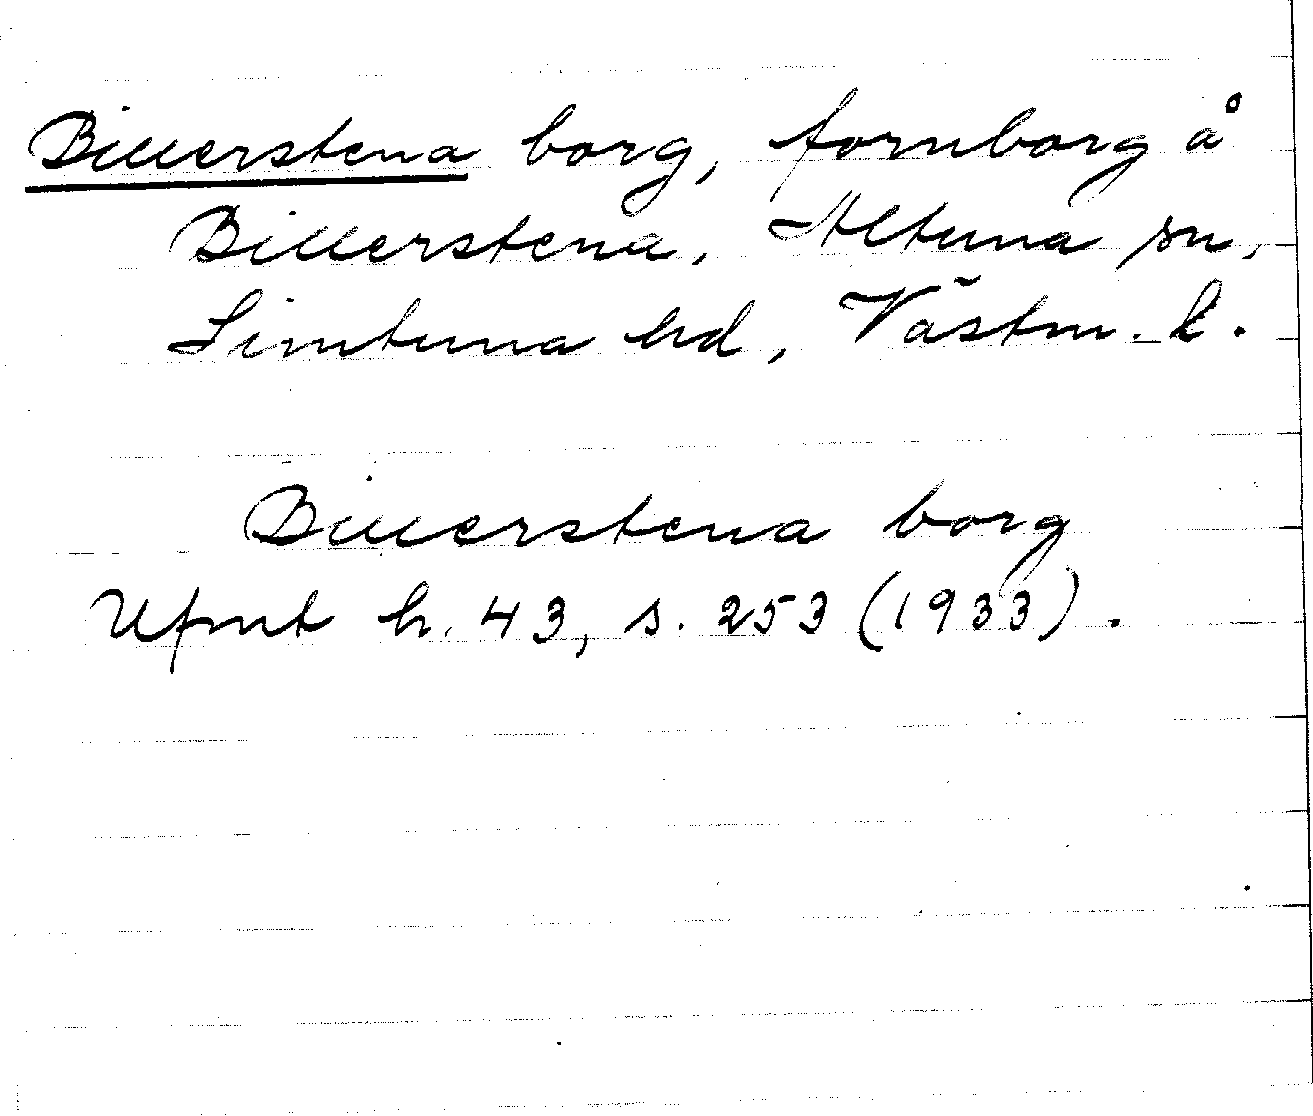 Billerstena borg, fornborg å
Billerstena, Altuna sn,
Simtuna hd, Västm. l.
Billerstena borg
Ufmt h. 43, s. 253 (1933).